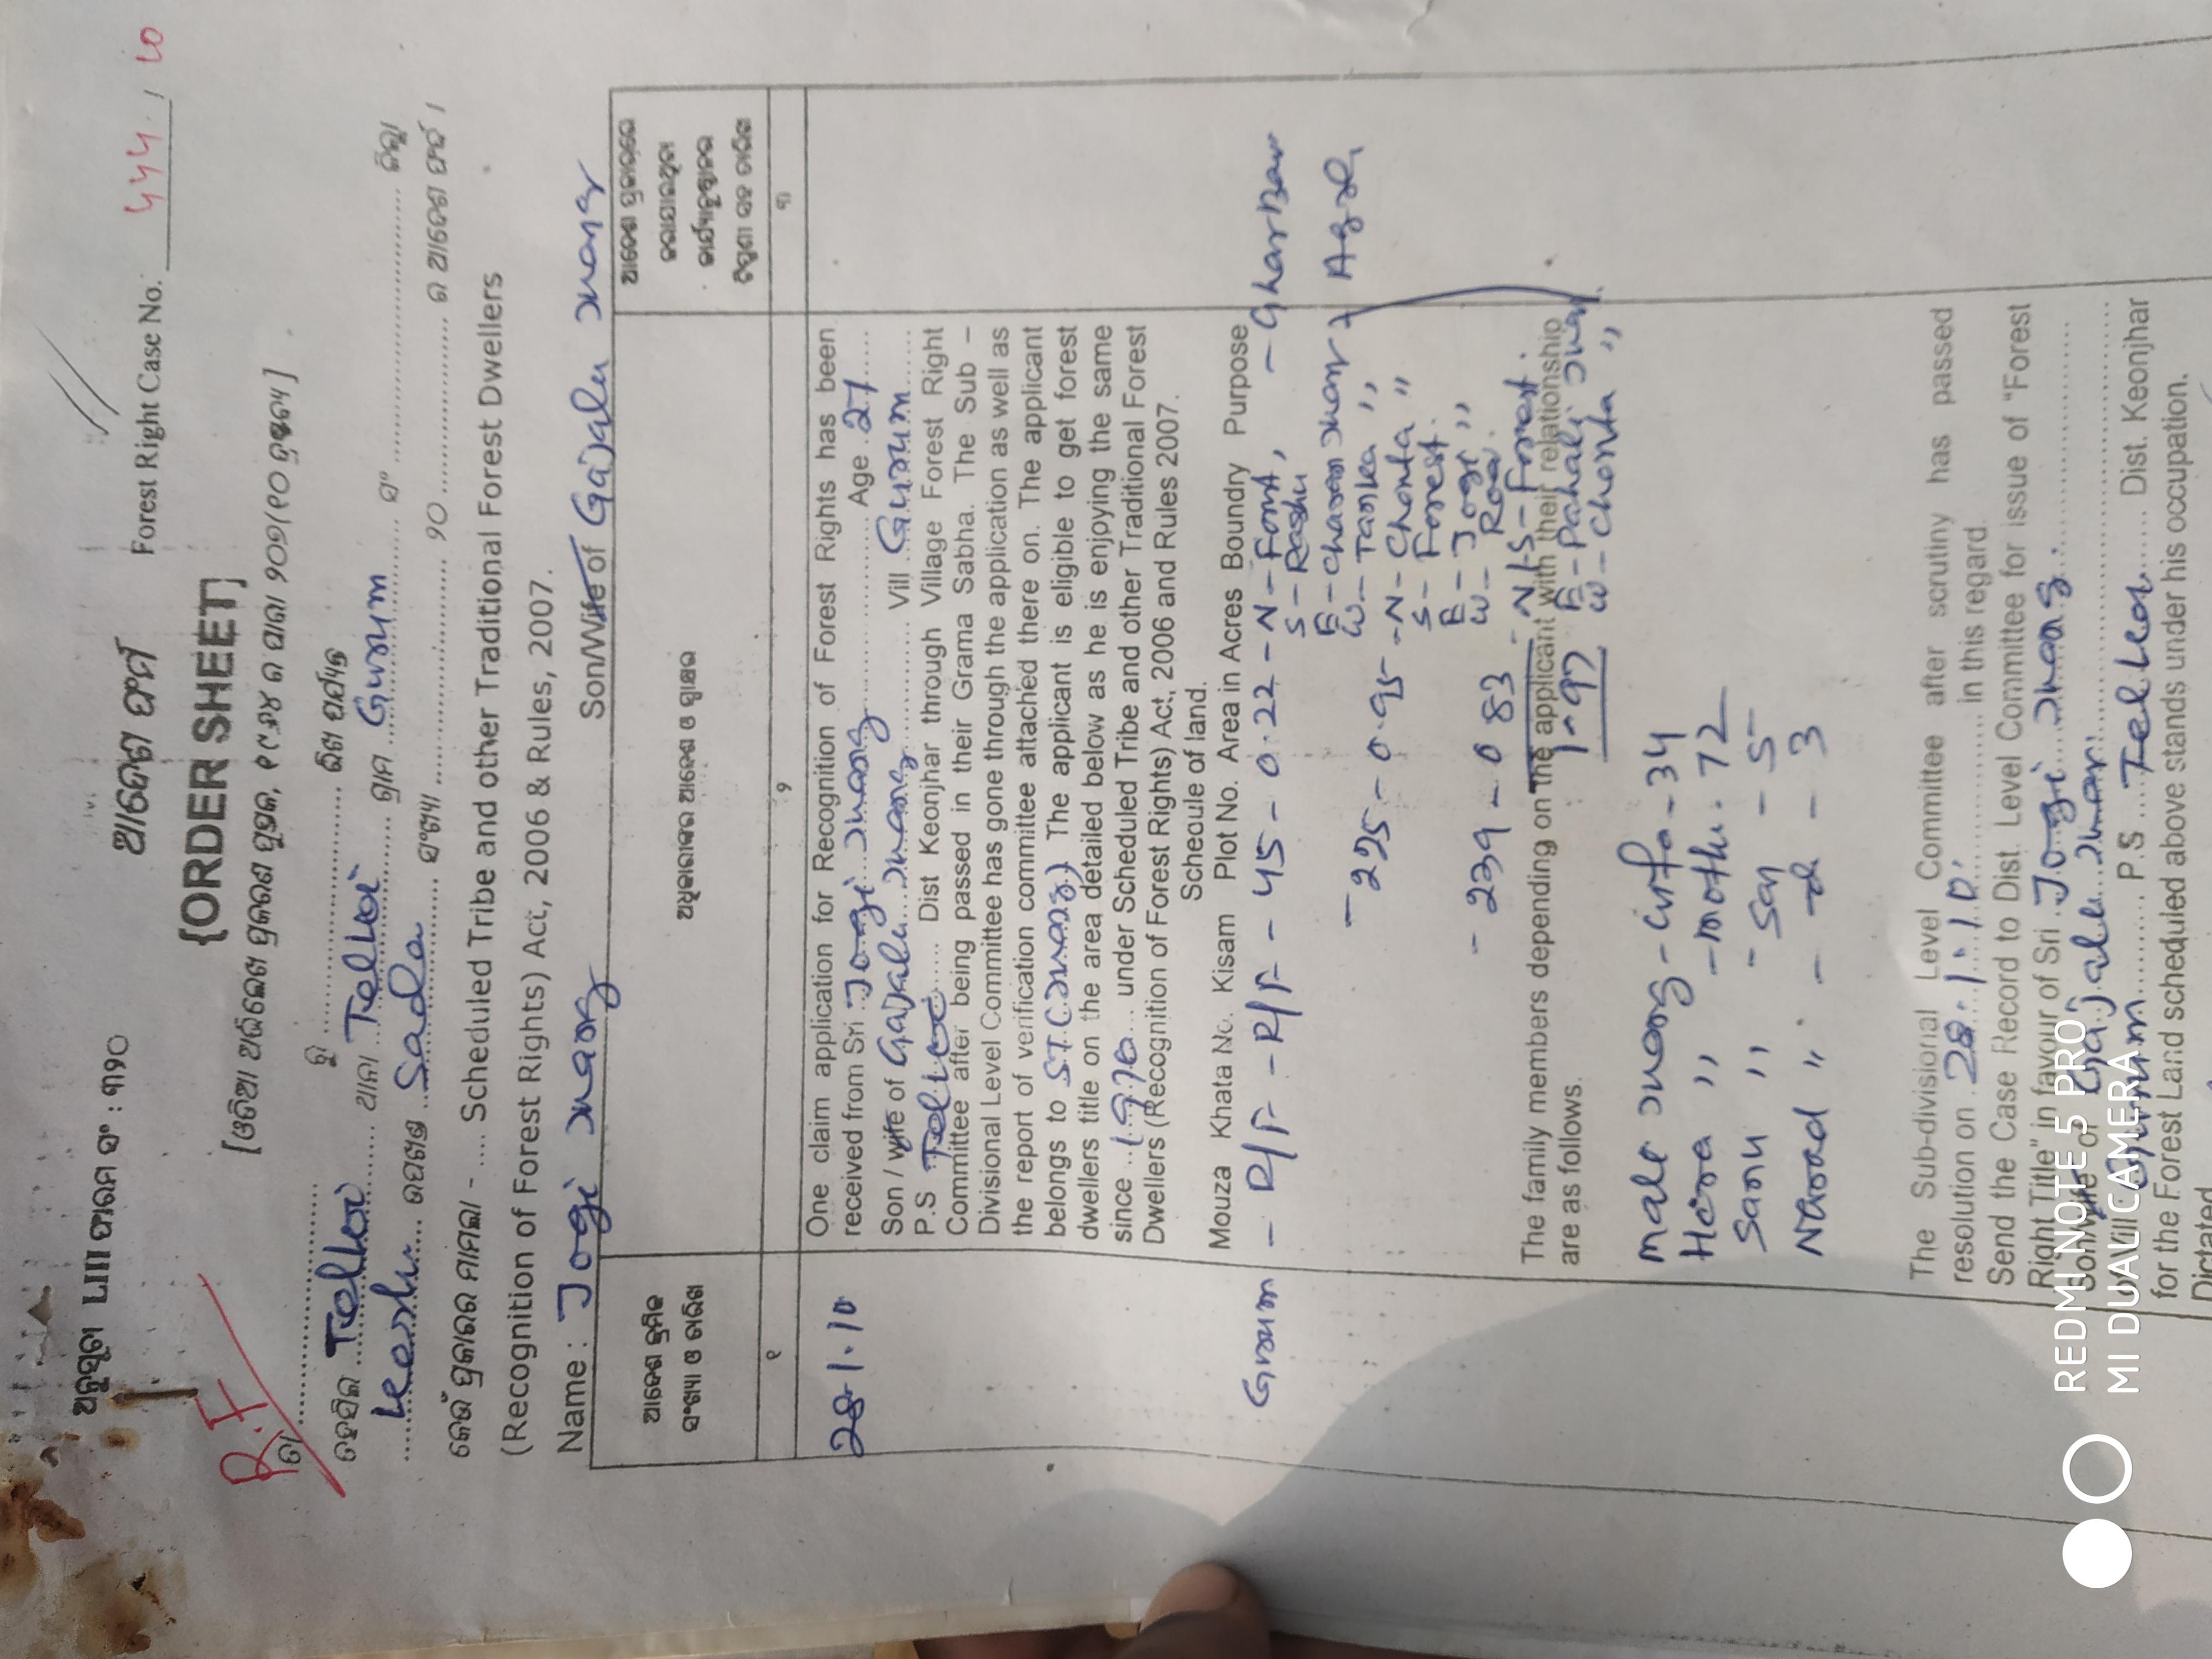 ଅନୁସୂଚୀ LIII ଫାରମ ନଂ : ୩୨୦
ଆଦେଶ ଫର୍ଦ୍ଦ
Forest Right Case No. 444 / 10
{ORDER SHEET}
R.F
ତା
ରୁ
ରିଖ ପର୍ଯ୍ୟନ୍ତ
ତହସିଲ Telkoi ଥାନା Telkoi ଗ୍ରାମ Gurum ସଂ ଜିଲ୍ଲା
Sada ସଂଖ୍ୟା ୨୦ ର ଆଦେଶ ଫର୍ଦ୍ଦ ।
କେଉଁ ପ୍ରକାରର ମାମଲା - .... Scheduled Tribe and other Traditional Forest Dwellers
(Recognition of Forest Rights) Act, 2006 & Rules, 2007.
Name : Jogi Juang Son/Wife of Gajalu Juang
ଆଦେଶ କ୍ରମିକ ସଂଖ୍ୟା ଓ ତାରିଖ
ଅଧିକାରୀଙ୍କର ଆଦେଶ ଓ ସ୍ୱାକ୍ଷର
୧ ୨ ୩
28.1.10
One claim application for Recognition of Forest Rights has been
received from Sri Jogi Juang Age 27
Son / wife of Gajalu Juang Vill Gurum
P.S Telkoi Dist Keonjhar through Village Forest Right
Committee after being passed in their Grama Sabha. The Sub –
Divisional Level Committee has gone through the application as well as
the report of verification committee attached there on. The applicant
belongs to ST (Juang) The applicant is eligible to get forest
dwellers title on the area detailed below as he is enjoying the same
since 1970 under Scheduled Tribe and other Traditional Forest
Dwellers (Recognition of Forest Rights) Act, 2006 and Rules 2007.
Scheoule of land.
Mouza Khata No. Kisam Plot No. Area in Acres Boundry Purpose
Gurum – R/F – R/F – 45 – 0.22 – N – Forest, – Gharbari
S – Rashu
E – Charan Juang
W – Tanka ,,
– 295 – 0.95 – N – Chenta ,,
S – Forest.
E – Jogi ,,
W – Road.
– 239 – 0 83 – N/S – Forest.
E – Pahali Juang
W – Chenta ,,
1-97
The family members depending on the applicant with their relationship
are as follows.
Male Juang – wife – 34
Hera ,, – mother – 72
Sanu ,, – Son – 5
Narad ,, – do – 3
The Sub-divisional Level Committee after scrutiny has passed
resolution on 28.1.10. in this regard.
Send the Case Record to Dist. Level Committee for issue of "Forest
Right Title" in favour of Sri Jogi Juang.
Son/wife of Gajalu Juang
Vill Gurum P.S Telkoi Dist. Keonjhar
for the Forest Land scheduled above stands under his occupation.
Dictated
REDMI NOTE 5 PRO
MI DUAL CAMERA